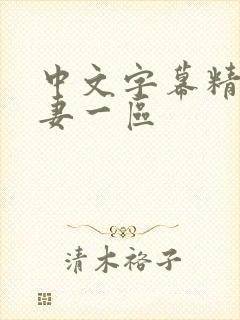 中文字幕精
妻一区
清木裕子